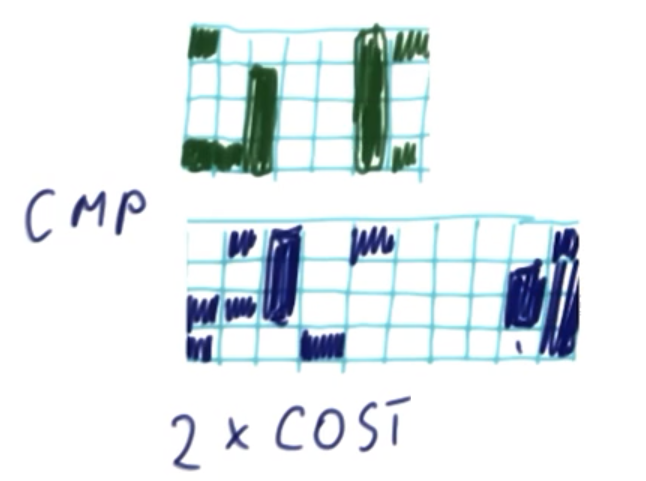 CMP
2 x COST